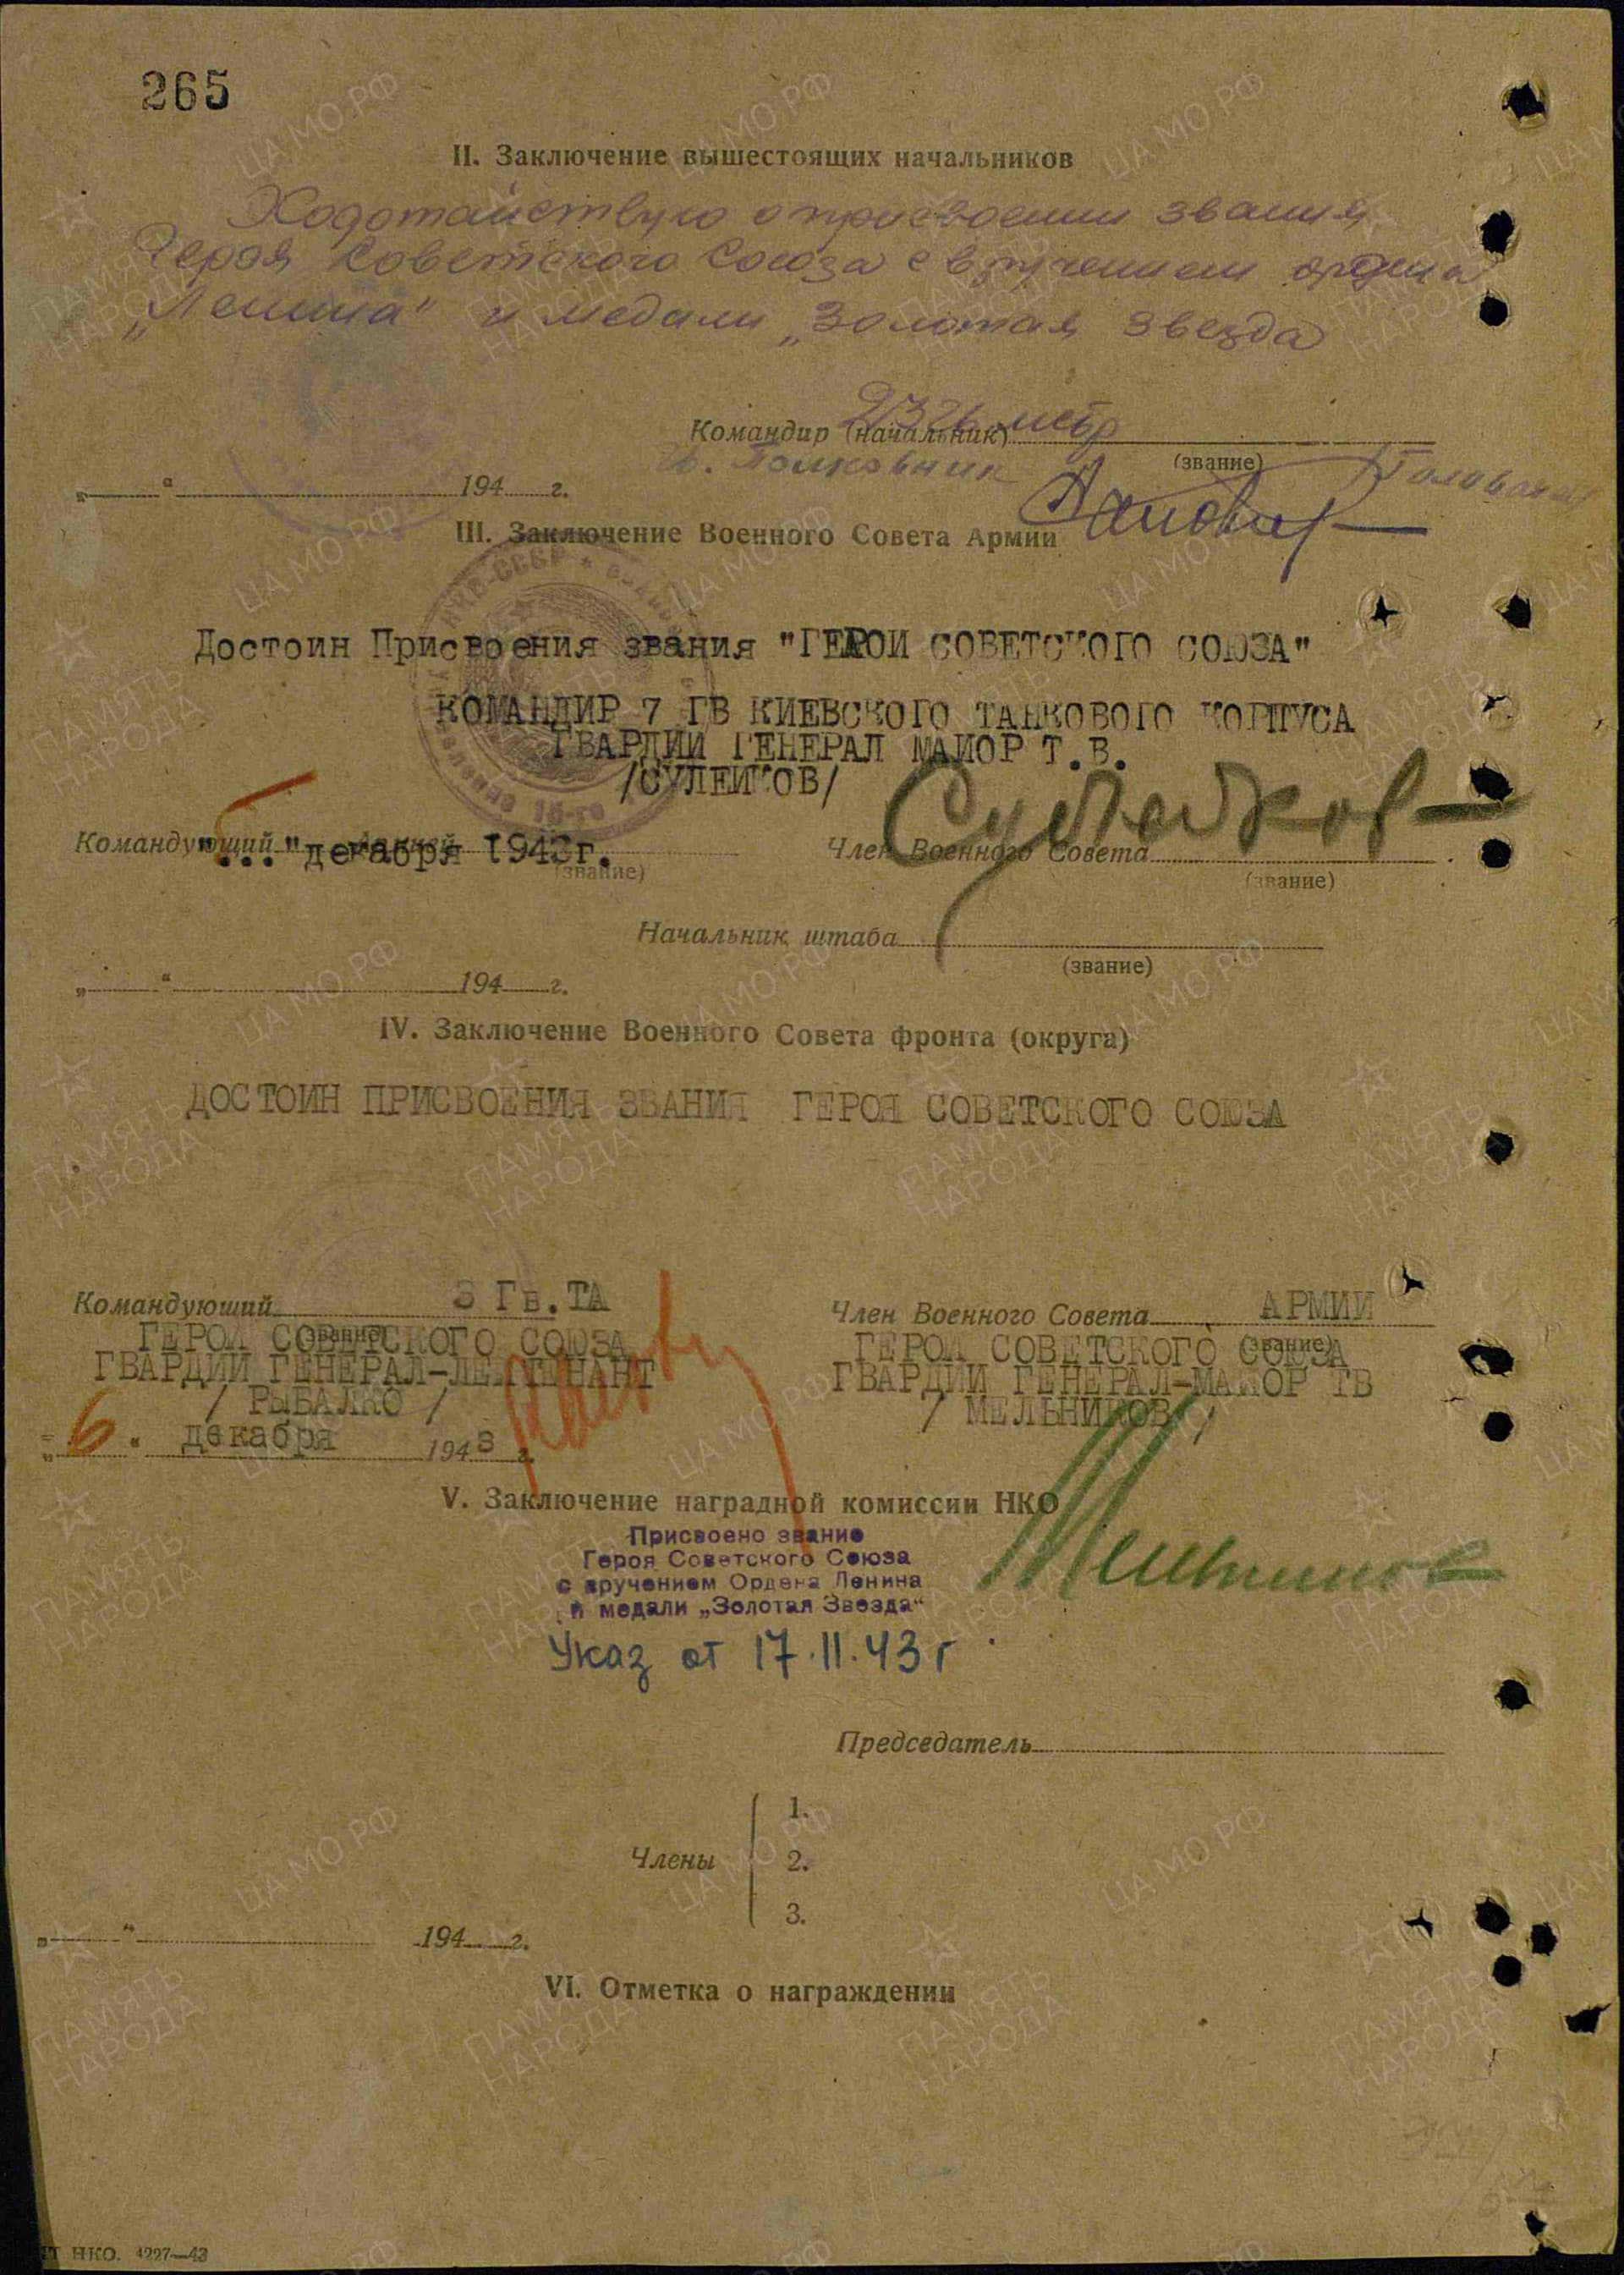 265
II. Заключение вышестоящих начальников
Ходотайствую о присвоении звания
Героя Советского Союза с вручением ордена
„Ленина" и медали „Золотая Звезда
Командир (начальник)
(звание)
Полковник
„ " 194 г.
III. Заключение Военного Совета Армии
Достоин Присвоения звания "ГЕРОЙ СОВЕТСКОГО СОЮЗА"
КОМАНДИР 7 ГВ КИЕВСКОГО ТАНКОВОГО КОРПУСА
ГВАРДИИ ГЕНЕРАЛ МАЙОР Т.В.
/СУЛЕЙКОВ/
Сулейков
Командующий Армией
"..."декабря 1943г.
(звание)
Член Военного Совета
(звание)
Начальник штаба
(звание)
„ " 194 г.
IV. Заключение Военного Совета фронта (округа)
ДОСТОИН ПРИСВОЕНИЯ ЗВАНИЯ ГЕРОЯ СОВЕТСКОГО СОЮЗА
Командующий 3 Гв.ТА
(звание)
ГЕРОЙ СОВЕТСКОГО СОЮЗА
ГВАРДИИ ГЕНЕРАЛ-ЛЕЙТЕНАНТ
/ РЫБАЛКО /
„6" декабря 1943 г.
Член Военного Совета АРМИИ
(звание)
ГЕРОЙ СОВЕТСКОГО СОЮЗА
ГВАРДИИ ГЕНЕРАЛ-МАЙОР ТВ
/ МЕЛЬНИКОВ /
V. Заключение наградной комиссии НКО
Присвоено звание
Героя Советского Союза
с вручением Ордена Ленина
и медали „Золотая Звезда"
Мельников
Указ от 17.11.43 г
Председатель
Члены
1.
2.
3.
„ " 194 г.
VI. Отметка о награждении
НКО. 4227—43